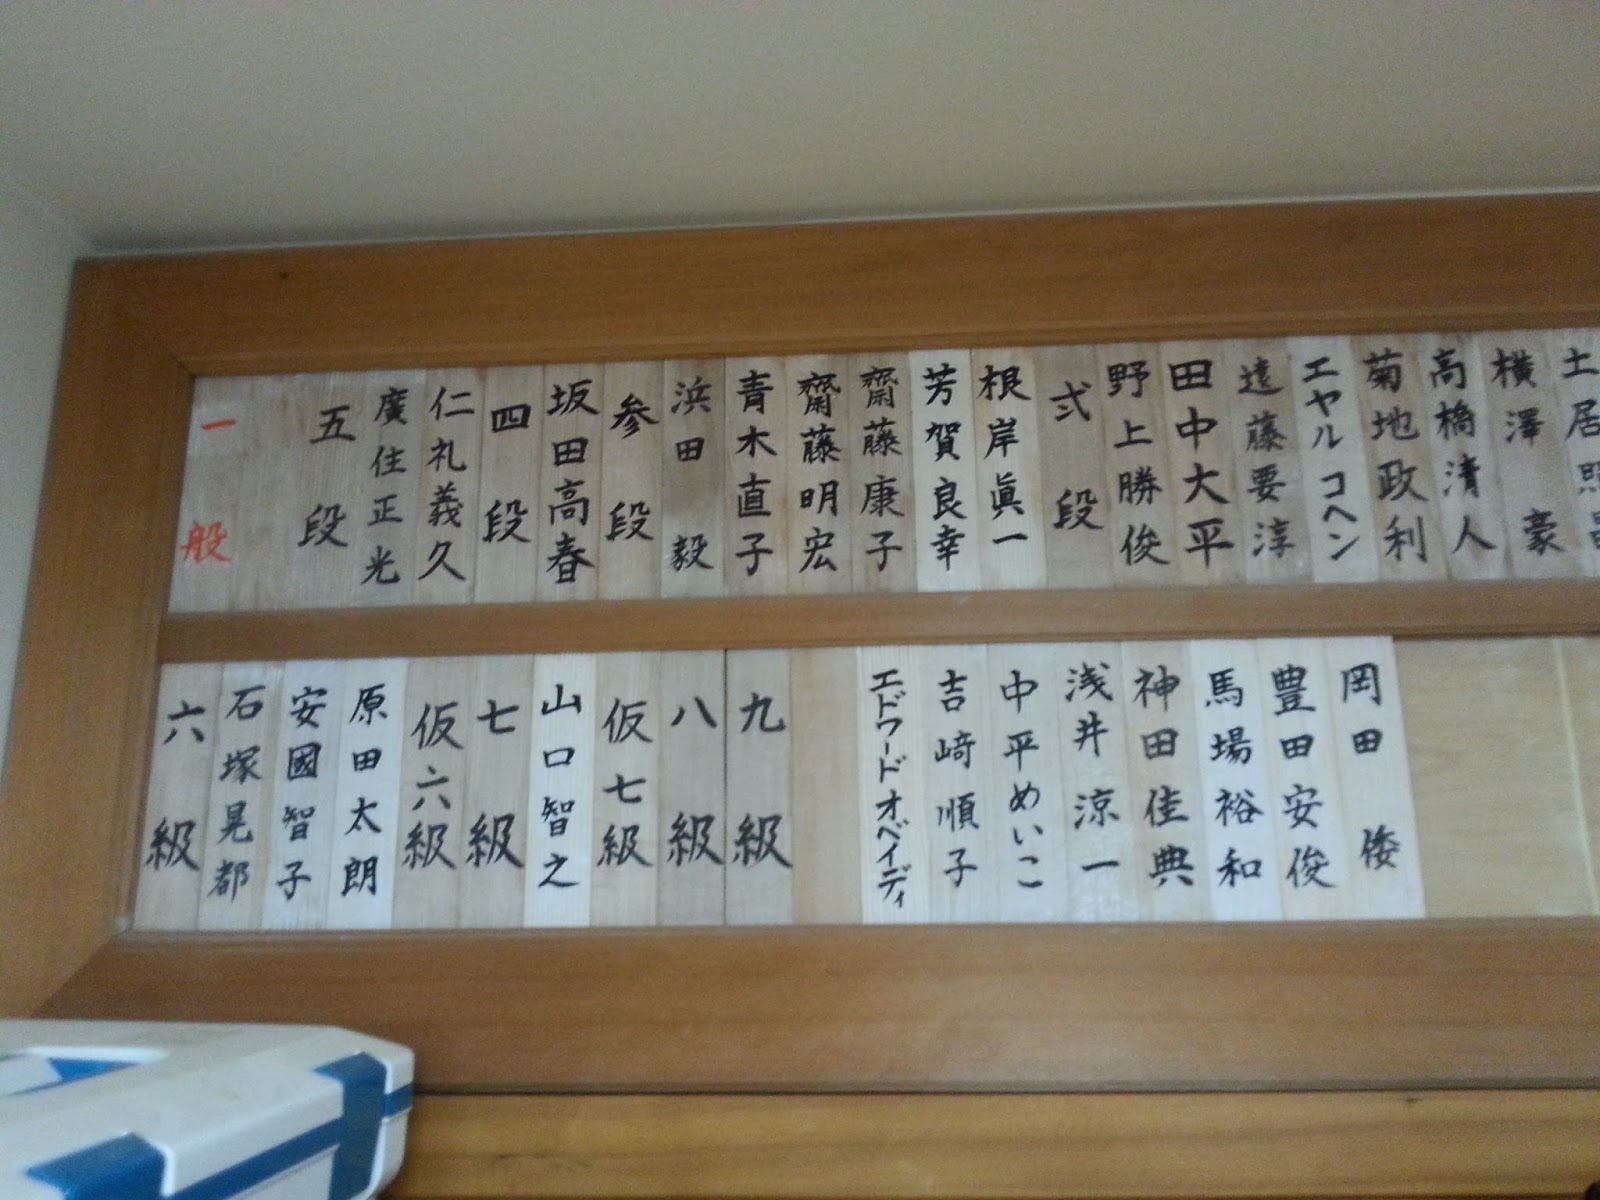 一般
五段
廣住正光
仁礼義久
四段
坂田高春
参段
浜田毅
青木直子
齋藤明宏
齋藤康子
芳賀良幸
根岸眞一
弍段
野上勝俊
田中大平
遠藤要淳
エヤル コヘン
菊地政利
高橋清人
横澤豪
土居照
六級
石塚晃都
安國智子
原田太朗
仮六級
七級
山口智之
仮七級
八級
九級
エドワード オベイディ
吉﨑順子
中平めいこ
浅井涼一
神田佳典
馬場裕和
豊田安俊
岡田倭